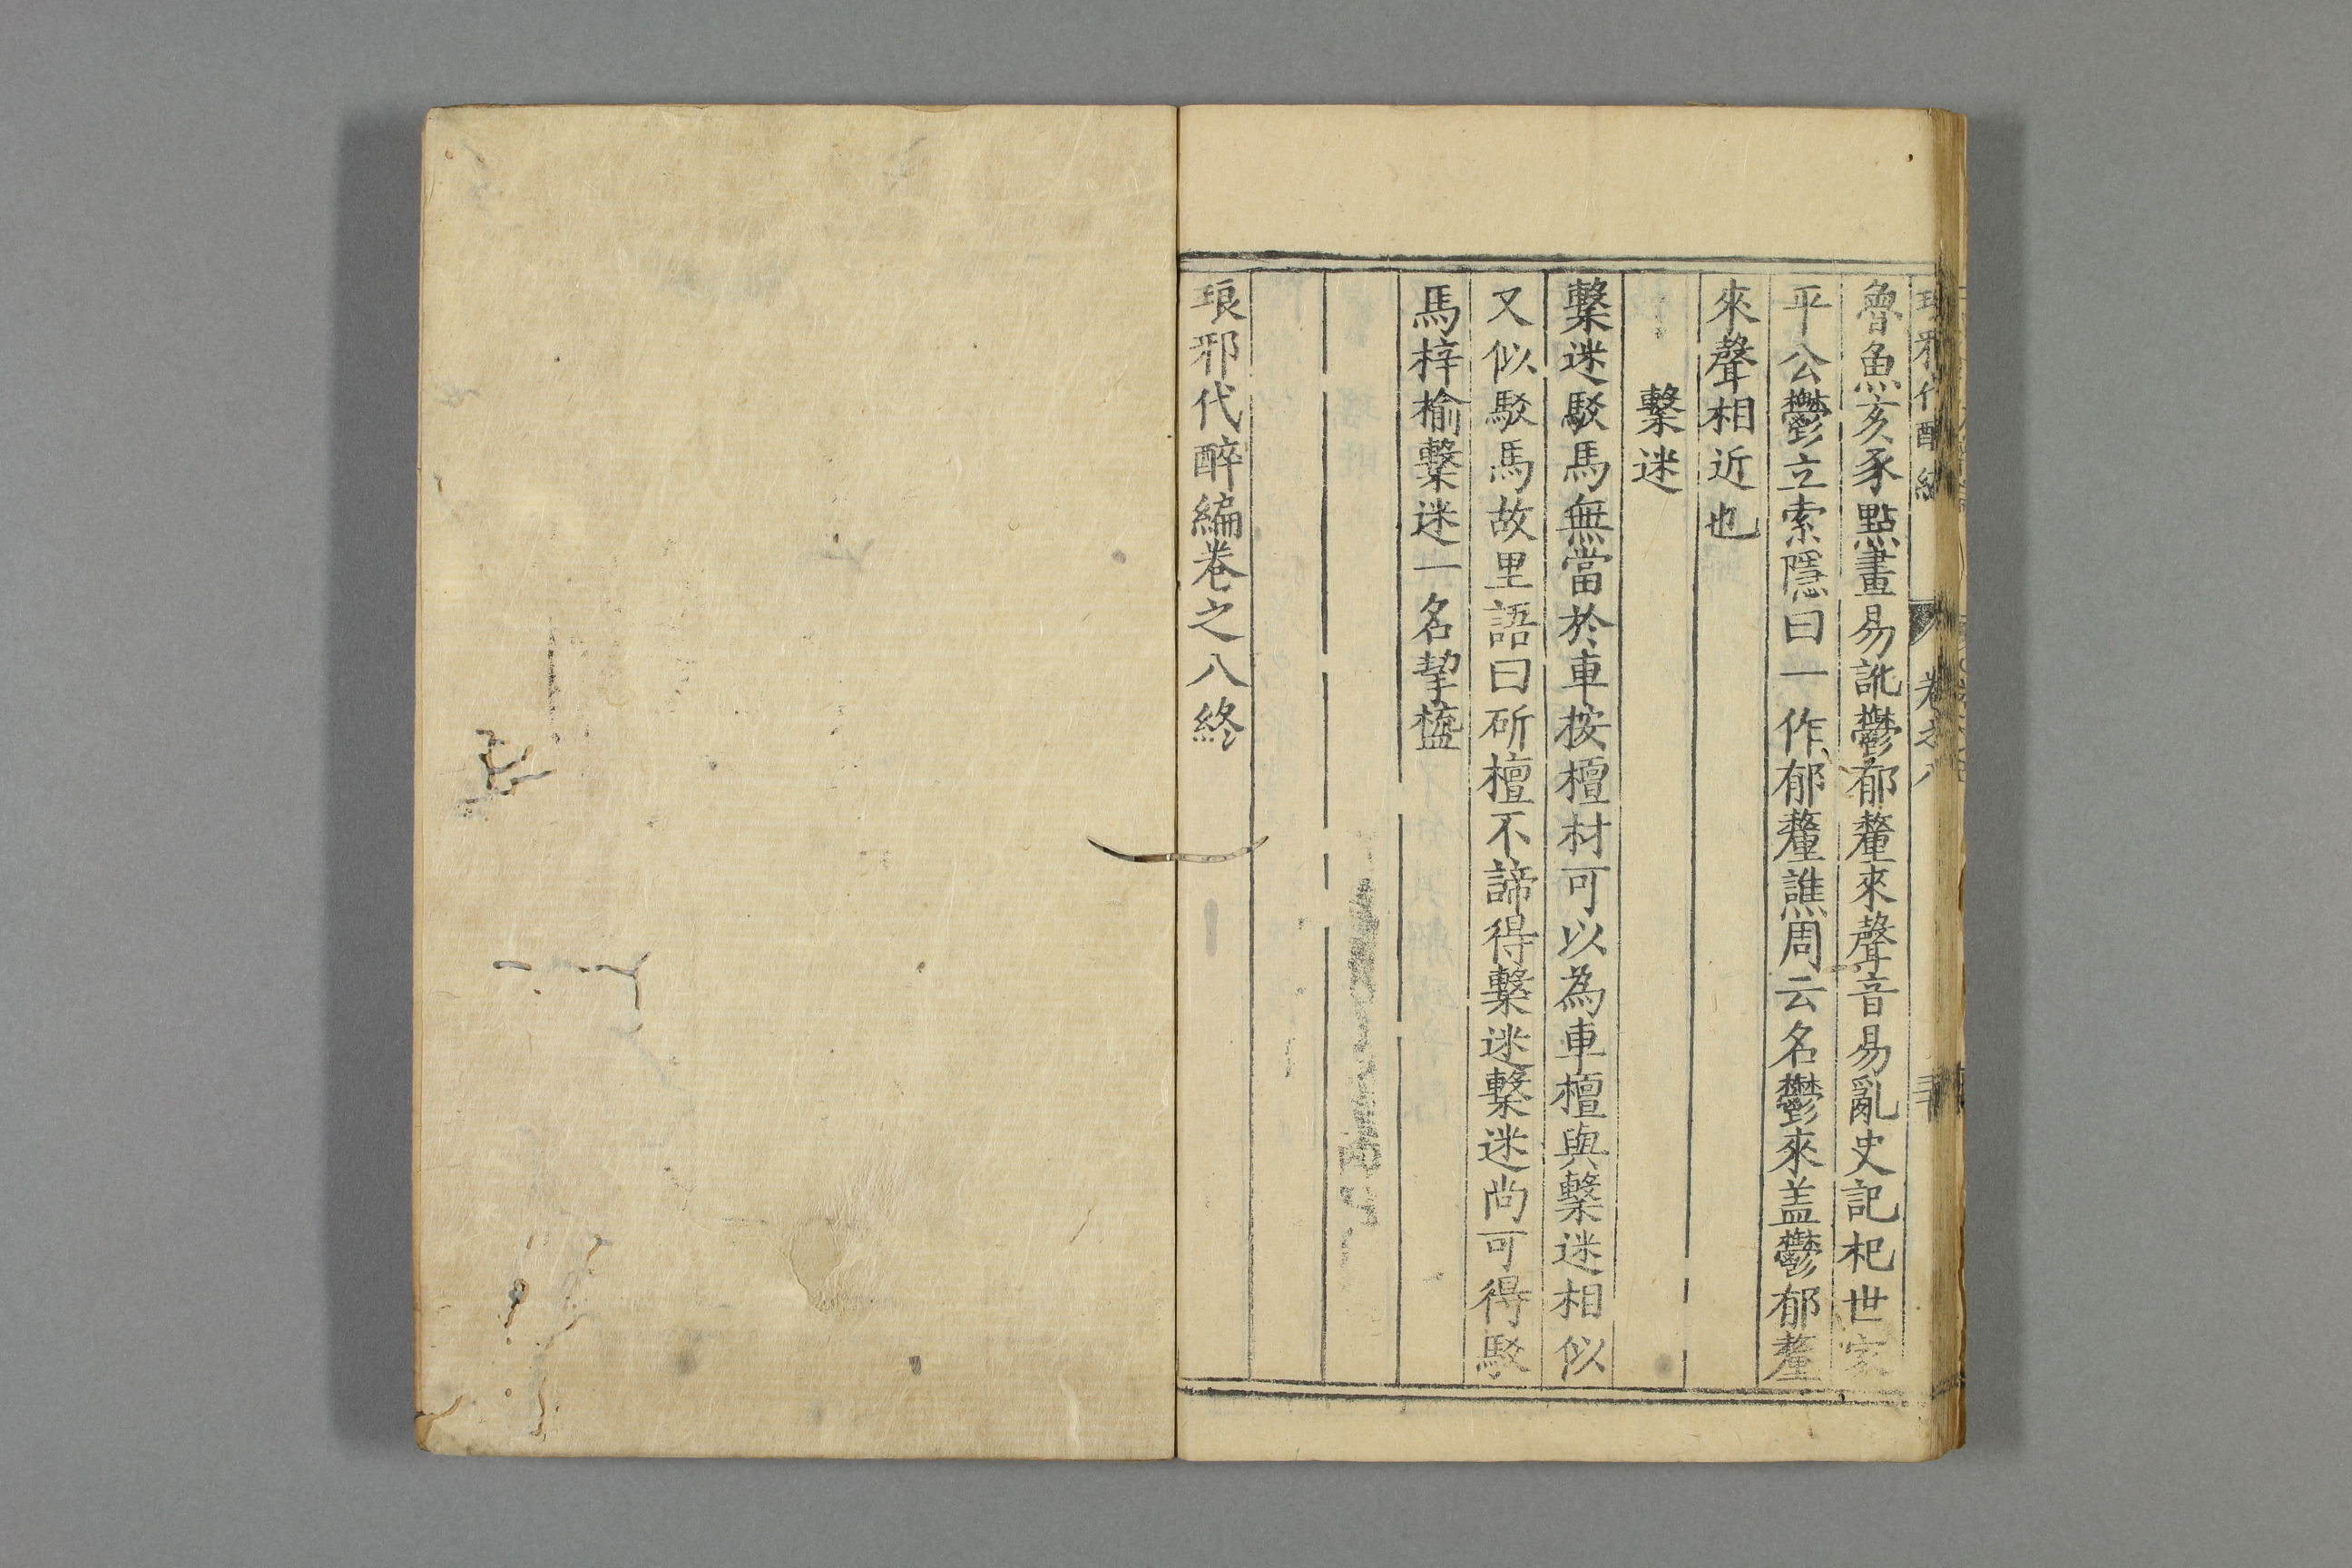 魯魚亥豕點畫易訛鬱郁釐來聲音易亂史記杞世家
平公鬱立索隱曰一作郁釐譙周云名鬱來盖鬱郁釐
來聲相近也
繫迷
繫迷駁馬無當於車按檀材可以為車檀與繫迷相似
又似駁馬故里語曰斫檀不諦得繫迷繫迷尚可得駁
馬梓榆繫迷一名挈橀
琅邪代醉編卷之八終